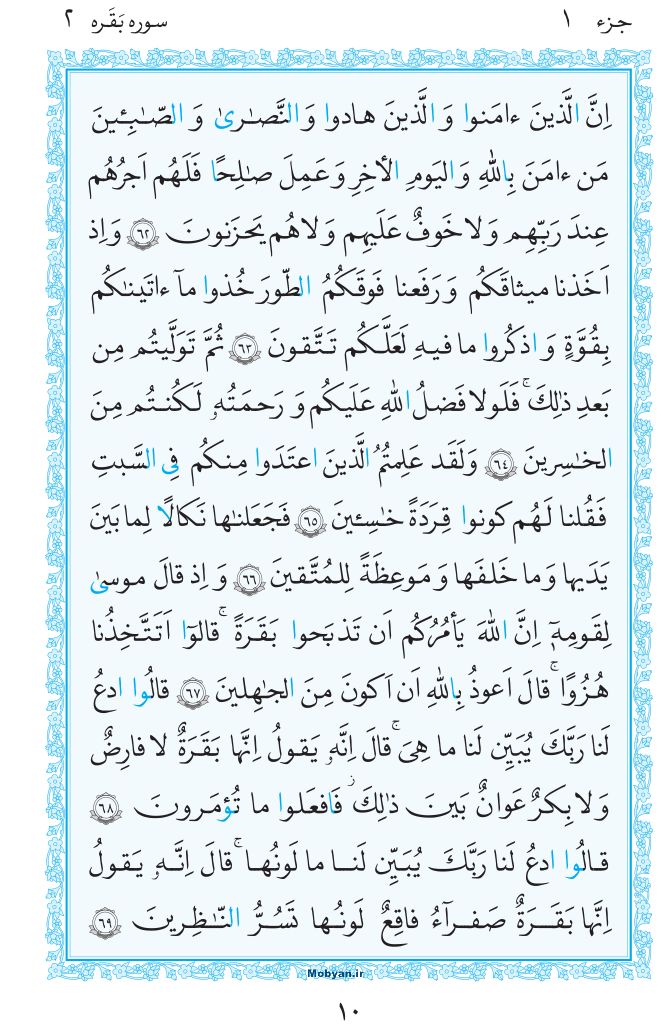 جزء ۱ سوره بَقَره ۲
اِنَّ الَّذينَ ءامَنوا وَ الَّذينَ هادوا وَ النَّصـٰرىٰ وَ الصّـٰبِـٔينَ
مَن ءامَنَ بِاللهِ وَ اليَومِ الأخِرِ وَ عَمِلَ صـٰلِحًا فَلَهُم اَجرُهُم
عِندَ رَبِّهِم وَ لا خَوفٌ عَلَيهِم وَ لا هُم يَحزَنونَ ﴿٦٢﴾ وَ اِذ
اَخَذنا ميثاقَكُم وَ رَفَعنا فَوقَكُمُ الطّورَ خُذوا مآ ءاتَينـٰكُم
بِقُوَّةٍ وَ اذكُروا ما فيهِ لَعَلَّكُم تَتَّقونَ ﴿٦٣﴾ ثُمَّ تَوَلَّيتُم مِن
بَعدِ ذٰلِكَ ۚ فَلَولا فَضلُ اللهِ عَلَيكُم وَ رَحمَتُهُۥ لَكُنتُم مِنَ
الخـٰسِرينَ ﴿٦٤﴾ وَ لَقَد عَلِمتُمُ الَّذينَ اعتَدَوا مِنكُم فِى السَّبتِ
فَقُلنا لَهُم كونوا قِرَدَةً خـٰسِـٔينَ ﴿٦٥﴾ فَجَعَلنـٰها نَكالًا لِما بَينَ
يَدَيها وَ ما خَلفَها وَ مَوعِظَةً لِلمُتَّقينَ ﴿٦٦﴾ وَ اِذ قالَ موسىٰ
لِقَومِهِۦٓ اِنَّ اللهَ يَأمُرُكُم اَن تَذبَحوا بَقَرَةً ۚ قالوٓا اَتَتَّخِذُنا
هُزُوًا ۚ قالَ اَعوذُ بِاللهِ اَن اَكونَ مِنَ الجـٰهِلينَ ﴿٦٧﴾ قالُوا ادعُ
لَنا رَبَّكَ يُبَيِّن لَنا ما هِىَ ۚ قالَ اِنَّهُۥ يَقولُ اِنَّها بَقَرَةٌ لا فارِضٌ
وَ لا بِكرٌ عَوانٌ بَينَ ذٰلِكَ ۖ فَافعَلوا ما تُؤمَرونَ ﴿٦٨﴾
قالُوا ادعُ لَنا رَبَّكَ يُبَيِّن لَنا ما لَونُها ۚ قالَ اِنَّهُۥ يَقولُ
اِنَّها بَقَرَةٌ صَفرآءُ فاقِعٌ لَونُها تَسُرُّ النّـٰظِرينَ ﴿٦٩﴾
Mobyan.ir
۱۰